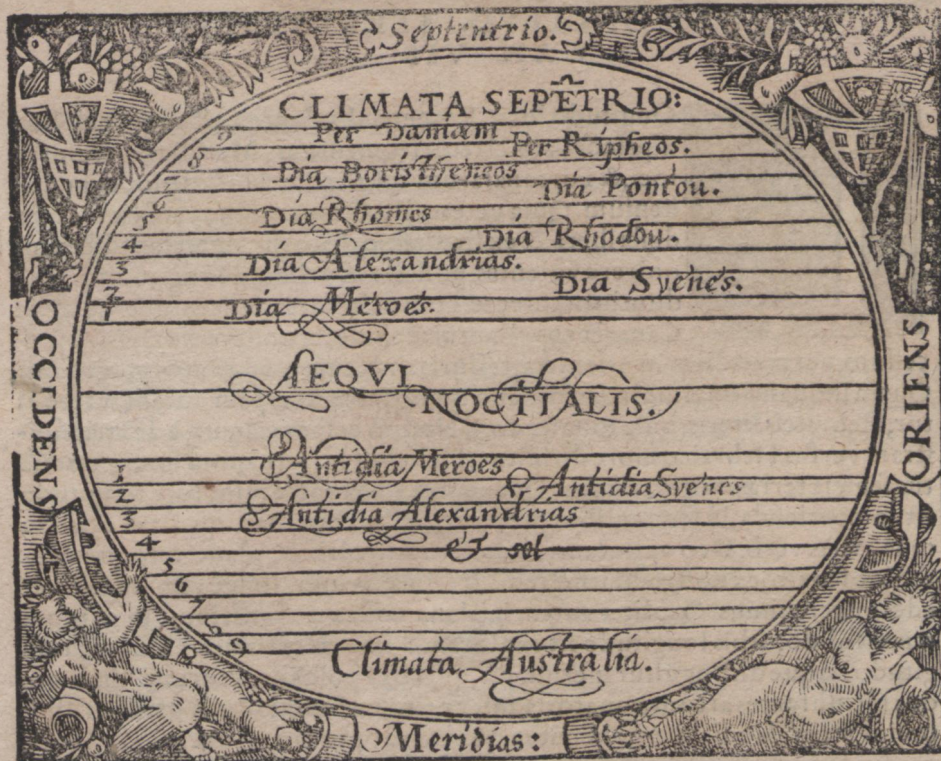 Septentrio.
CLIMATA SEPE͂TRIO:
9 Per Daniam
Per Ripheos.
8
Dia Boristheneos
7
Dia Pontou.
6
Dia Rhomes
5
Dia Rhodou.
4
Dia Alexandrias.
3
Dia Syenes.
2
Dia Meroes.
1
OCCIDENS
ORIENS
AEQVI
NOCTIALIS.
1
Antidia Meroes
2
Antidia Syenes
3
Antidia Alexandrias
4
&
5
6
7
8
9
Climata Australia.
Meridias: